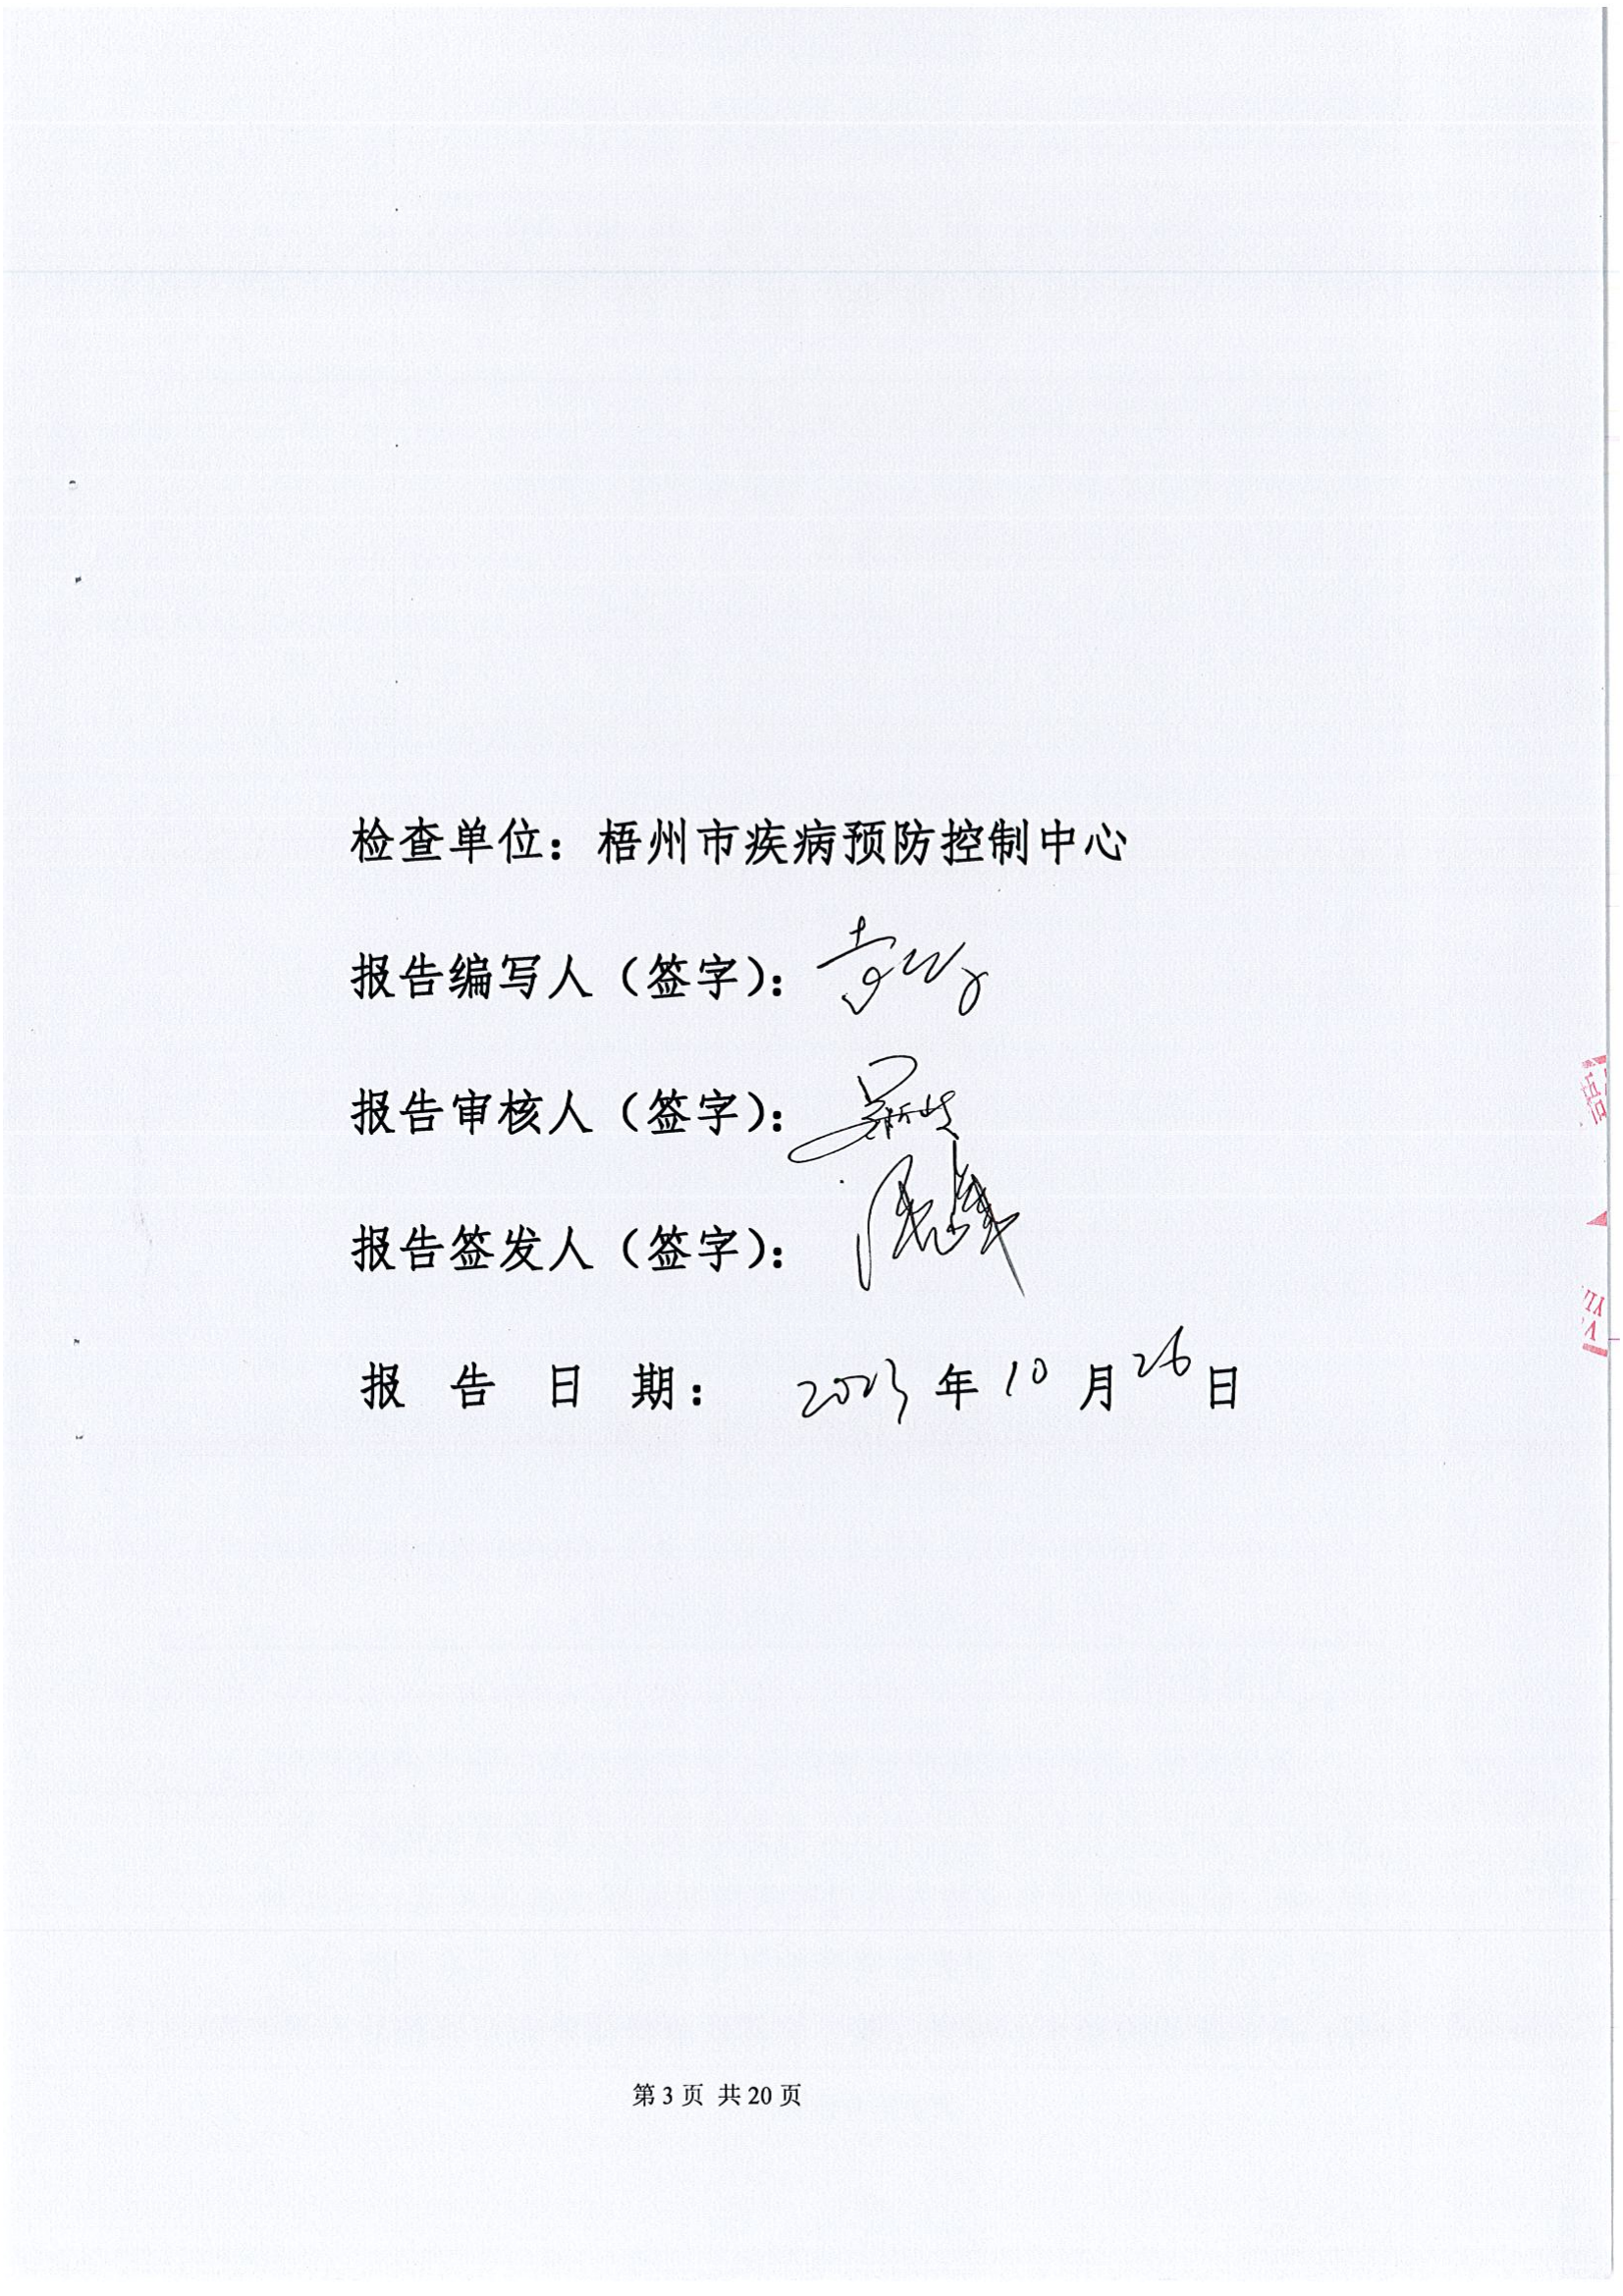 检查单位：梧州市疾病预防控制中心
报告编写人（签字）：
报告审核人（签字）：
报告签发人（签字）：
报 告 日 期： 2023 年 10 月 26 日
第 3 页 共 20 页